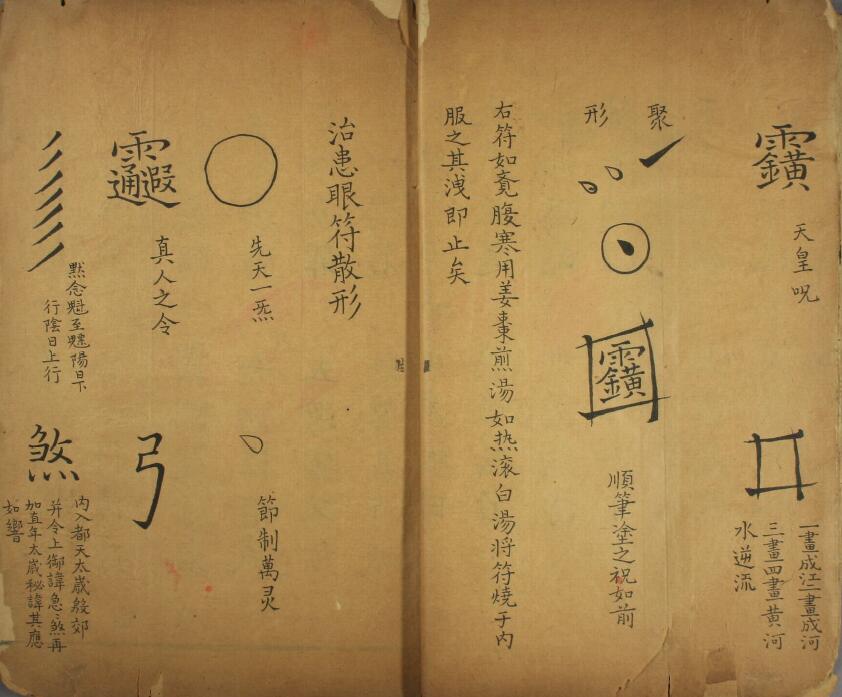 天皇咒
一畫成江二畫成河
三畫四畫黄河
水逆流
聚
形
順筆塗之祝如前
右符如竟腹寒用姜棗煎湯如热滚白湯將符燒于内
服之其洩即止矣
治患眼符散形
先天一炁
節制萬灵
真人之令
弓
默念魁至魒陽日下
行陰日上行
煞
内入都天太歲殷郊
并令上御諱急急煞再
加直年太歲秘諱其應
如響